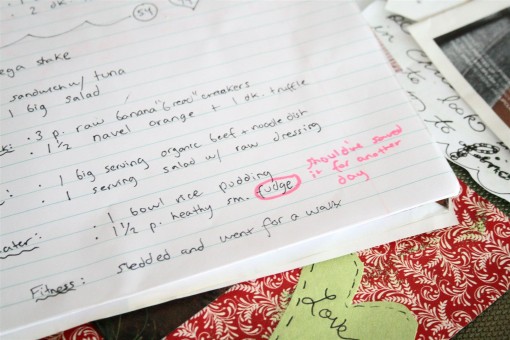 54
ega shake
sandwich w/ tuna
1 big salad
: 3 p. raw banana "bread" crackers
: 1 1/2 navel orange + 1 dk. truffle
: 1 big serving organic beef + noodle dish
1 serving salad w/ raw dressing
: 1 bowl rice pudding
: 1 1/2 p. heathy sm. fudge
should've saved
it for another
day
Fitness: sledded and went for a walk
look
to
Love